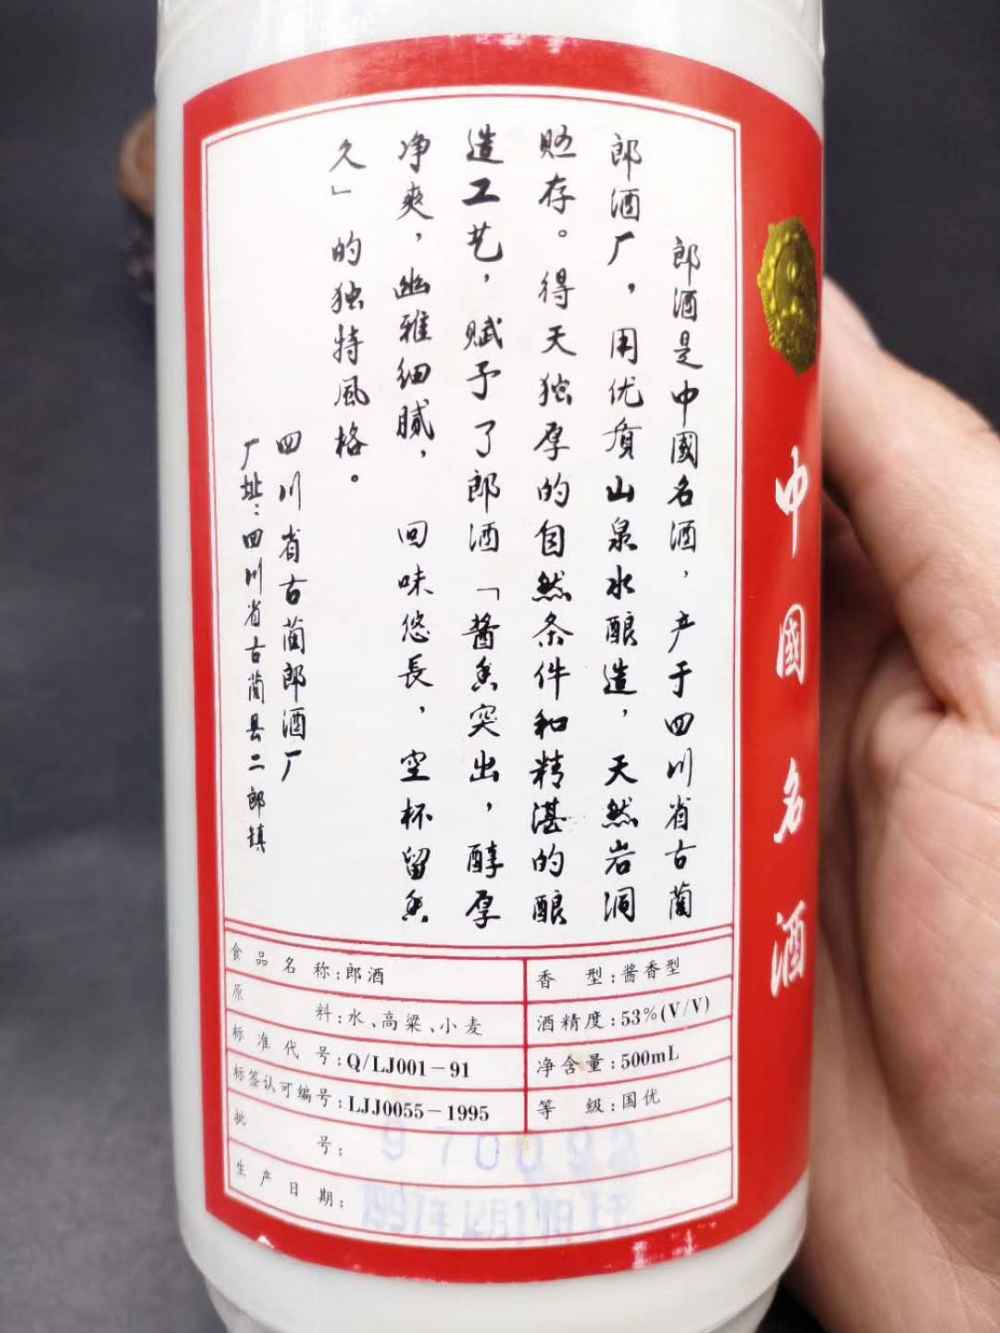 郎酒是中國名酒，产于四川省古蔺
郎酒厂，用优质山泉水酿造，天然岩洞
贮存。得天独厚的自然条件和精湛的酿
造工艺，赋予了郎酒「酱香突出，醇厚
净爽，幽雅细腻，回味悠長，空杯留香
久」的独特風格。
四川省古蔺郎酒厂
厂址：四川省古蔺县二郎镇
食品名称：郎酒
香型：酱香型
原料：水、高粱、小麦
酒精度：53%(V/V)
标准代号：Q/LJ001-91
净含量：500mL
标签认可编号：LJJ0055-1995
等级：国优
批号：
生产日期：
中國名酒